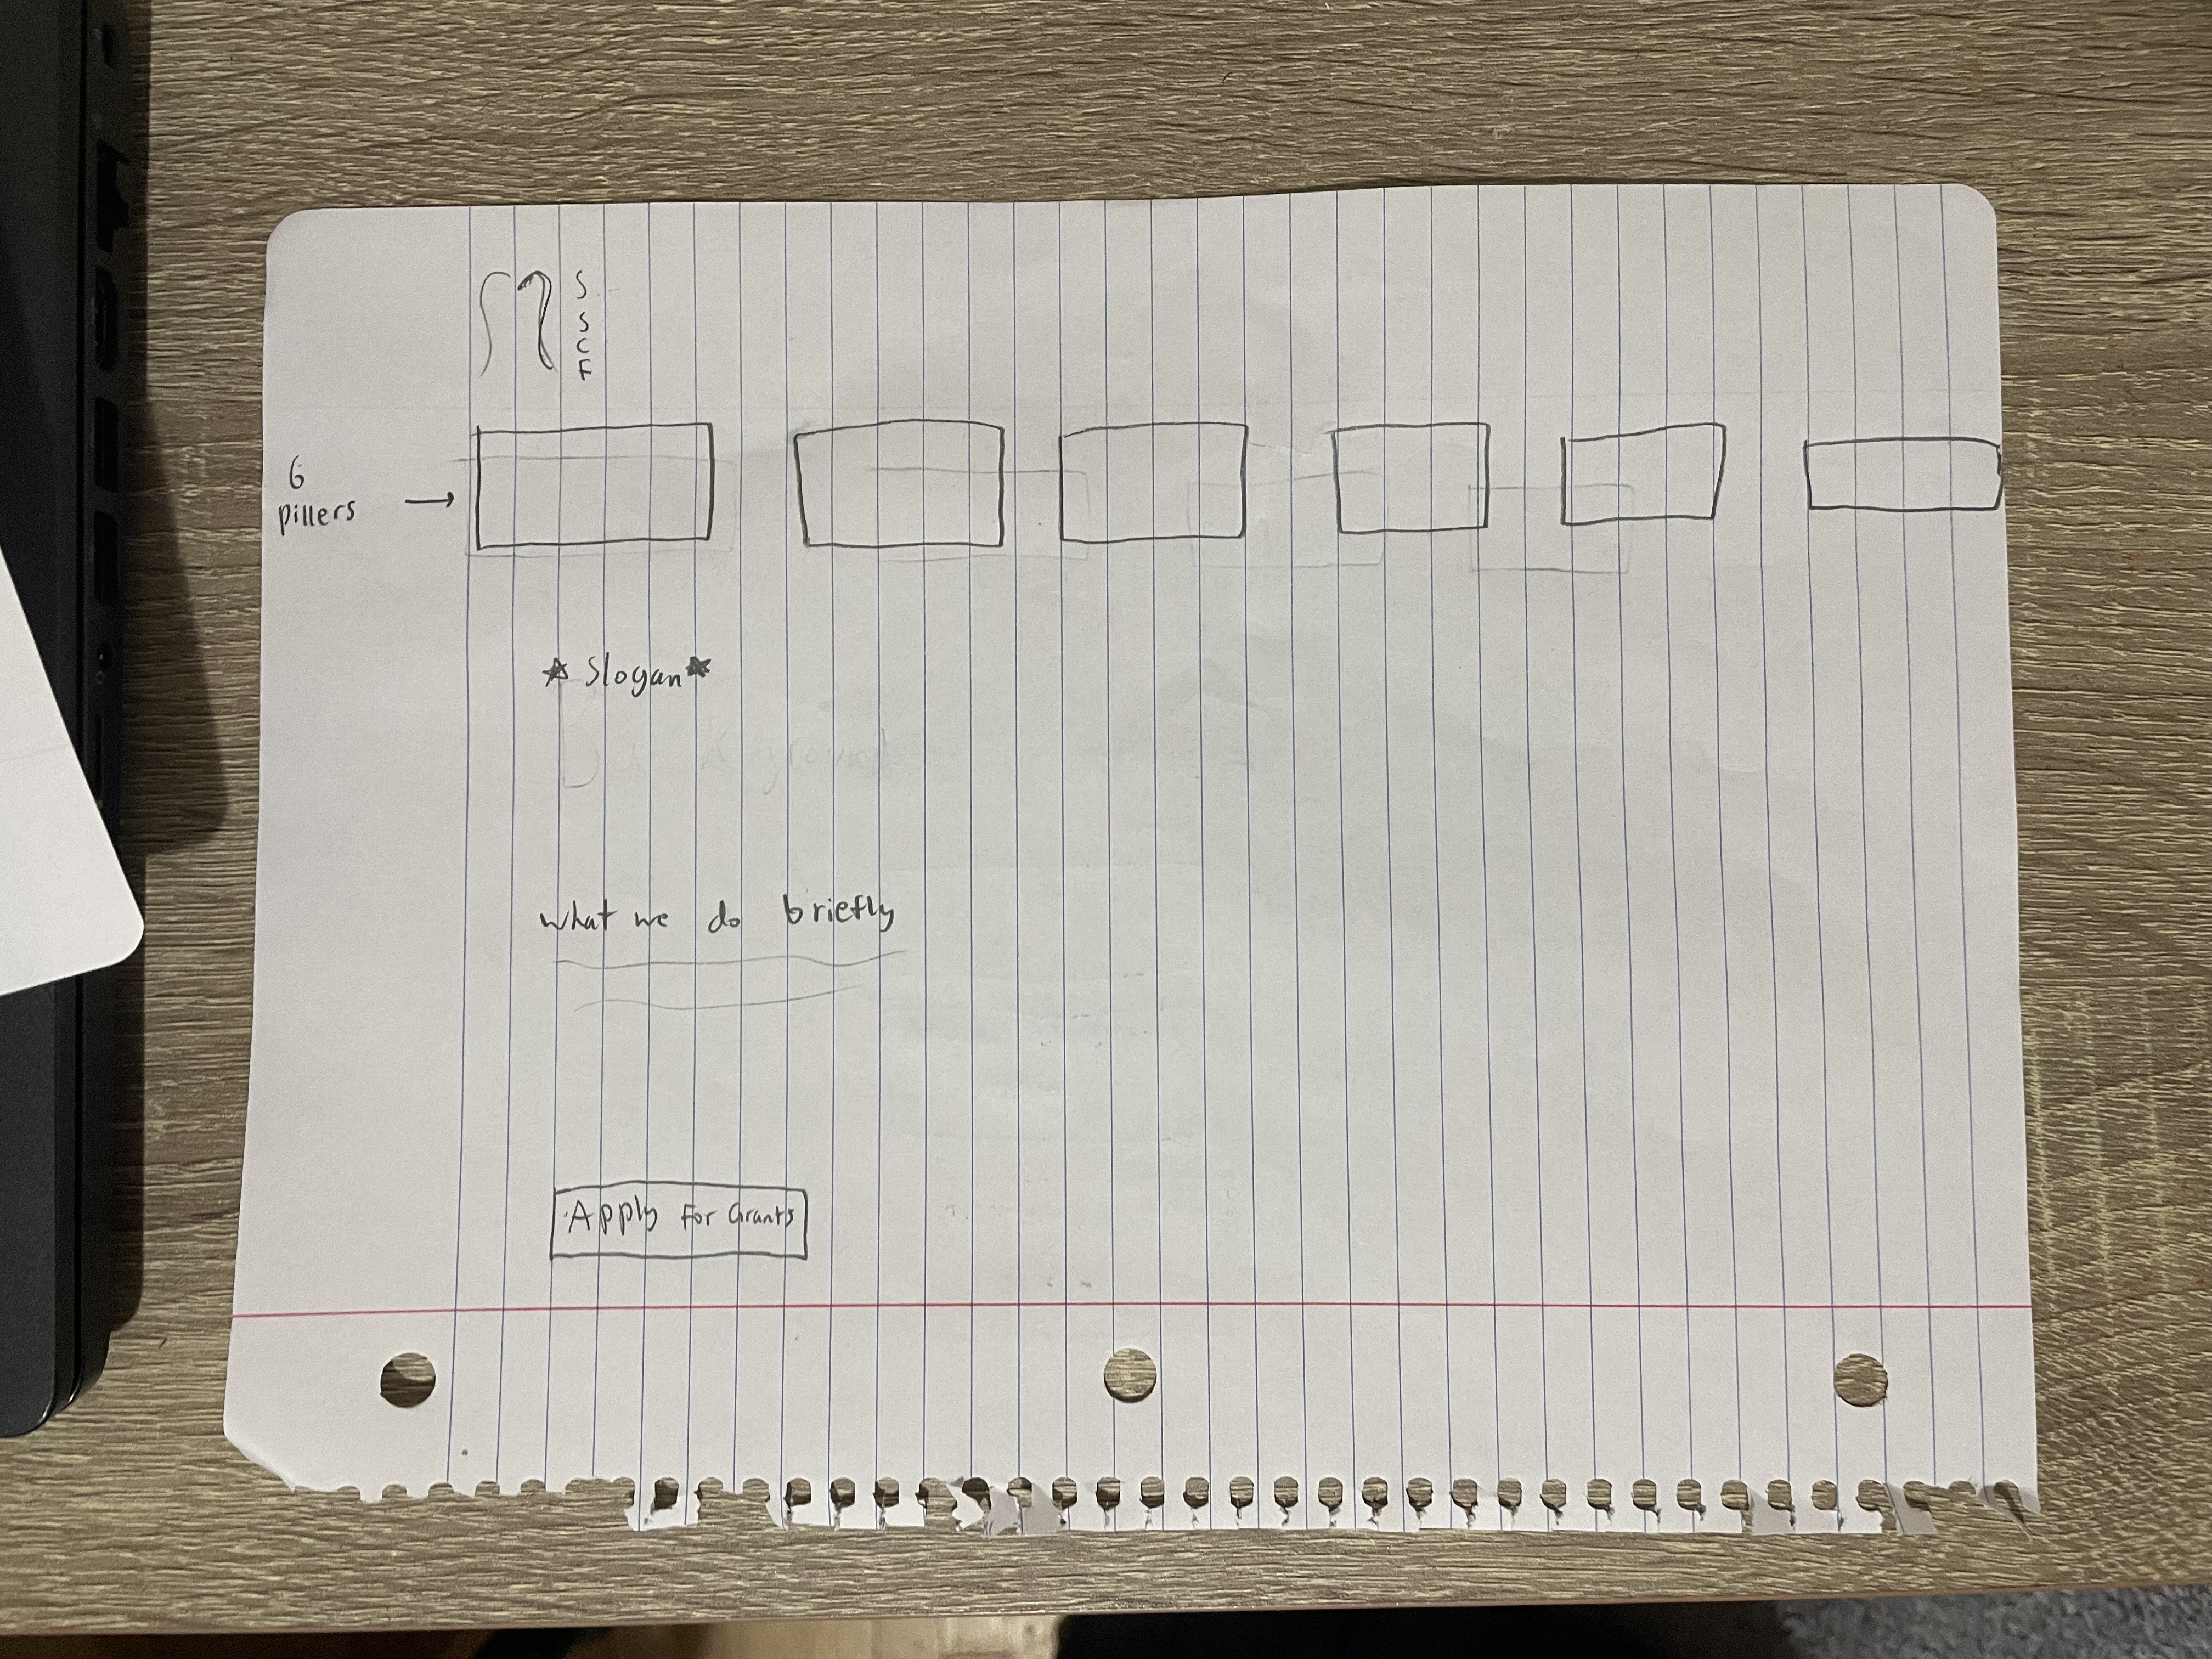 S
S
C
F
6
pillers →
★ Slogan ★
what we do briefly
Apply for Grants